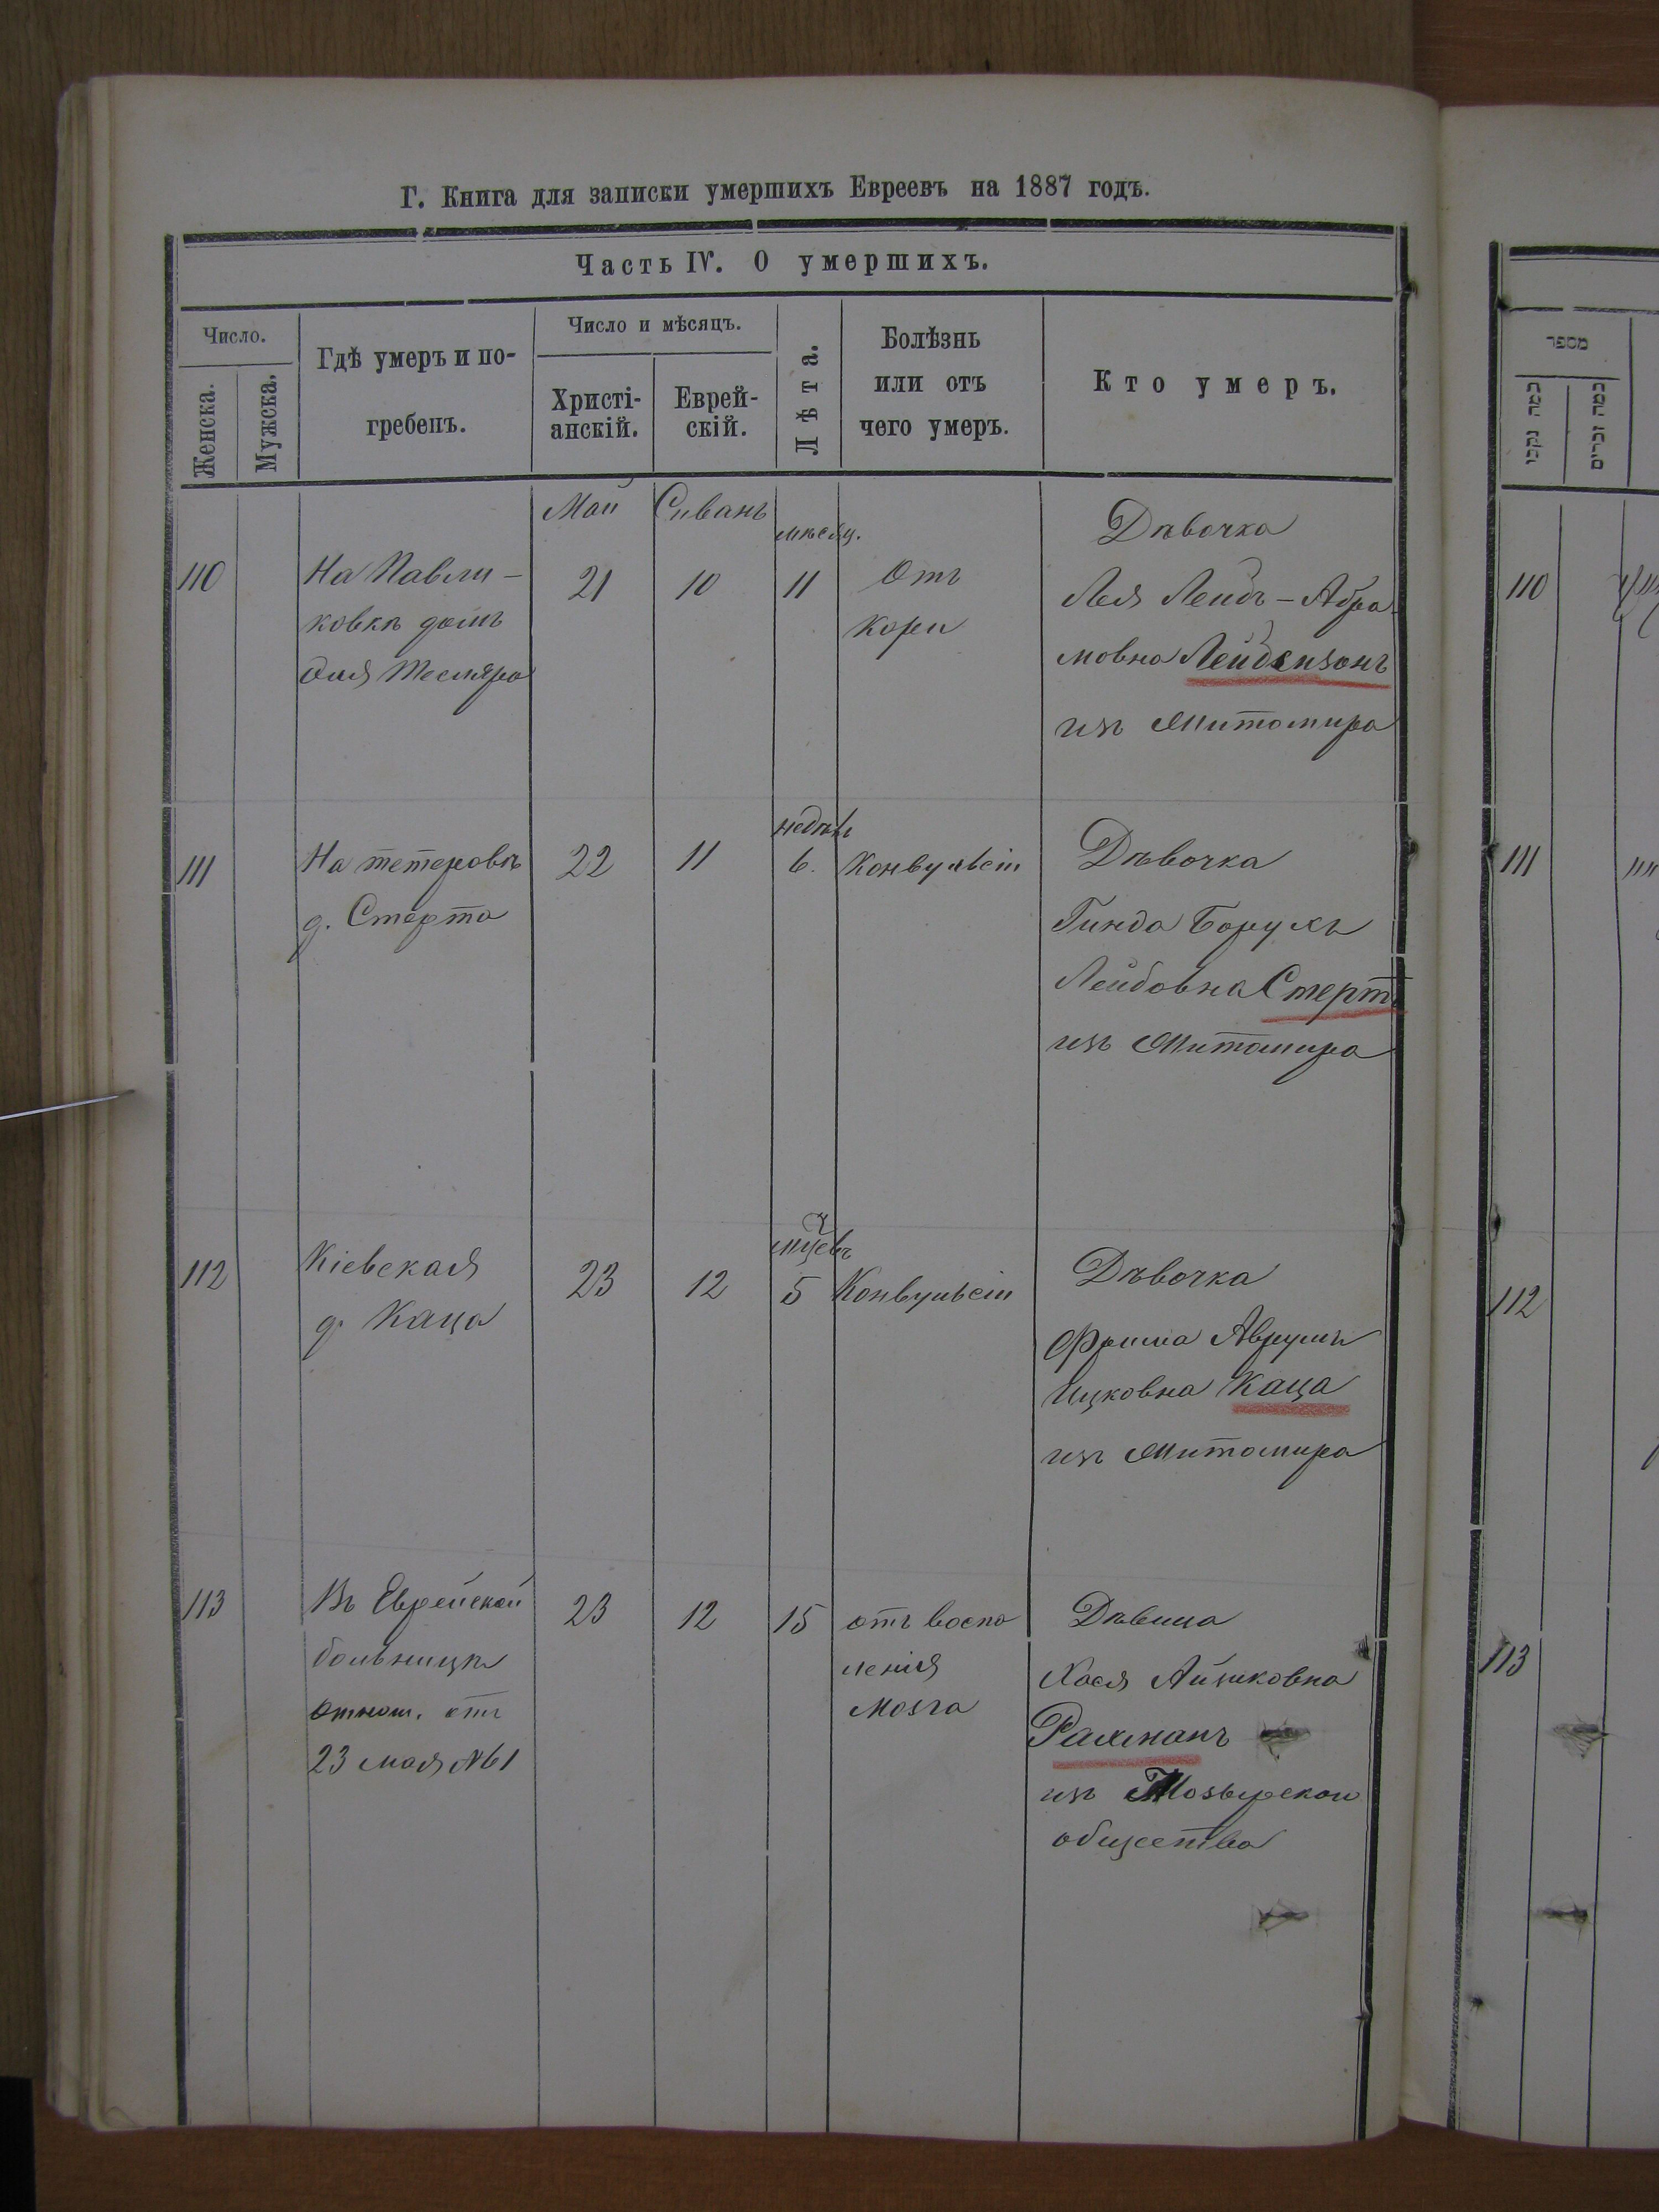 Г. Книга для записки умершихъ Евреевъ на 1887 годъ.
Часть IV. О умершихъ.
Число.
Женска.
Мужска.
Гдѣ умеръ и по-
гребенъ.
Число и мѣсяцъ.
Христі-
анскій.
Еврей-
скій.
Лѣта.
Болѣзнь
или отъ
чего умеръ.
Кто умеръ.
Май Сиванъ
110
На Павли-
ковкѣ домъ
для Тесляра
21
10
мѣсяц.
11
Отъ
кори
Дѣвочка
Лея Лейбъ-Абра-
мовна Лейдензонъ
изъ Житомира
111
На тетеровѣ
д. Стерта
22
11
недѣль
6.
Конвульсіи
Дѣвочка
Гинда Борухъ
Лейбовна Стертъ
изъ Житомира
112
Кіевская
д. Каца
23
12
5
Конвульсіи
Дѣвочка
Фрима Аврумъ
Ицковна Каца
изъ Житомира
113
Въ Еврейской
больницѣ
отнош. отъ
23 мая №61
23
12
15
отъ воспа
ленія
мозга
Дѣвица
Хася Айзиковна
изъ
общества
מספר
כמה נקבו
כמה זכרים
110
111
112
113